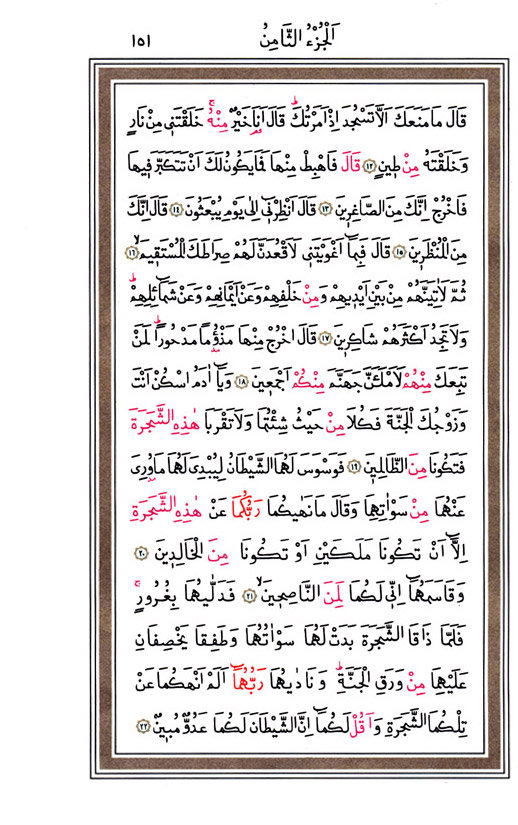 اَلْجُزْءُ الثَّامِنُ ١٥١
قَالَ مَا مَنَعَكَ اَلَّا تَسْجُدَ اِذْ اَمَرْتُكَۜ قَالَ اَنَا۬ خَيْرٌ مِنْهُۚ خَلَقْتَن۪ي مِنْ نَارٍ
وَخَلَقْتَهُ مِنْ ط۪ينٍ ١٢ قَالَ فَاهْبِطْ مِنْهَا فَمَا يَكُونُ لَكَ اَنْ تَتَكَبَّرَ ف۪يهَا
فَاخْرُجْ اِنَّكَ مِنَ الصَّاغِر۪ينَ ١٣ قَالَ اَنْظِرْن۪ٓي اِلٰى يَوْمِ يُبْعَثُونَ ١٤ قَالَ اِنَّكَ
مِنَ الْمُنْظَر۪ينَ ١٥ قَالَ فَبِمَٓا اَغْوَيْتَن۪ي لَاَقْعُدَنَّ لَهُمْ صِرَاطَكَ الْمُسْتَق۪يمَۙ ١٦
ثُمَّ لَاٰتِيَنَّهُمْ مِنْ بَيْنِ اَيْد۪يهِمْ وَمِنْ خَلْفِهِمْ وَعَنْ اَيْمَانِهِمْ وَعَنْ شَمَٓائِلِهِمْۜ
وَلَا تَجِدُ اَكْثَرَهُمْ شَاكِر۪ينَ ١٧ قَالَ اخْرُجْ مِنْهَا مَذْؤُ۫مًا مَدْحُورًاۜ لَمَنْ
تَبِعَكَ مِنْهُمْ لَاَمْلَـَٔنَّ جَهَنَّمَ مِنْكُمْ اَجْمَع۪ينَ ١٨ وَيَٓا اٰدَمُ اسْكُنْ اَنْتَ
وَزَوْجُكَ الْجَنَّةَ فَكُلَا مِنْ حَيْثُ شِئْتُمَا وَلَا تَقْرَبَا هٰذِهِ الشَّجَرَةَ
فَتَكُونَا مِنَ الظَّالِم۪ينَ ١٩ فَوَسْوَسَ لَهُمَا الشَّيْطَانُ لِيُبْدِيَ لَهُمَا مَا وُ۫رِيَ
عَنْهُمَا مِنْ سَوْاٰتِهِمَا وَقَالَ مَا نَهٰيكُمَا رَبُّكُمَا عَنْ هٰذِهِ الشَّجَرَةِ
اِلَّٓا اَنْ تَكُونَا مَلَكَيْنِ اَوْ تَكُونَا مِنَ الْخَالِد۪ينَ ٢٠
وَقَاسَمَهُمَٓا اِنّ۪ي لَكُمَا لَمِنَ النَّاصِح۪ينَۙ ٢١ فَدَلّٰيهُمَا بِغُرُورٍۚ
فَلَمَّا ذَاقَا الشَّجَرَةَ بَدَتْ لَهُمَا سَوْاٰتُهُمَا وَطَفِقَا يَخْصِفَانِ
عَلَيْهِمَا مِنْ وَرَقِ الْجَنَّةِۜ وَنَادٰيهُمَا رَبُّهُمَٓا اَلَمْ اَنْهَكُمَا عَنْ
تِلْكُمَا الشَّجَرَةِ وَاَقُلْ لَكُمَٓا اِنَّ الشَّيْطَانَ لَكُمَا عَدُوٌّ مُب۪ينٌ ٢٢